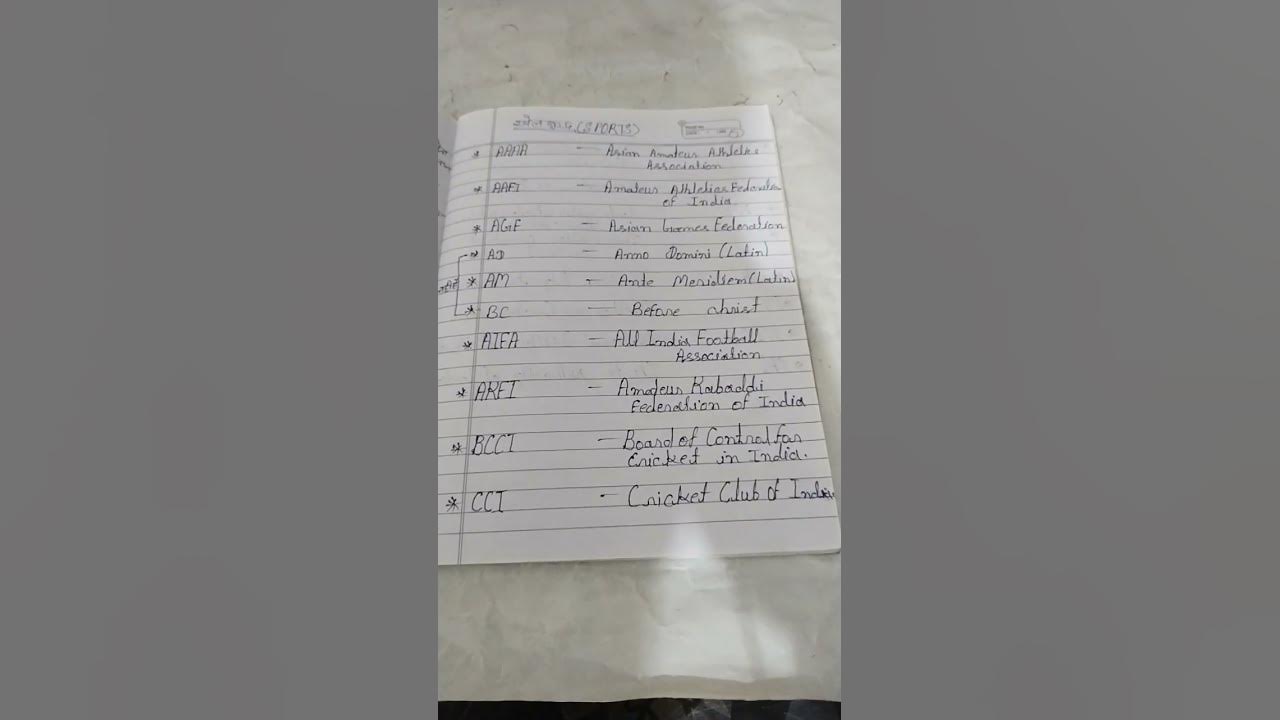 खेलकूद (SPORTS)
* AAAA — Asian Amateur Athletic
Association
* AAFI — Amateur Athletics Federation
of India
* AGF — Asian Games Federation
* AD — Anno Domini (Latin)
* AM — Ante Meridiem (Latin)
* BC — Before christ
* AIFA — All India Football
Association
* AKFI — Amateur Kabaddi
Federation of India
* BCCI — Board of Control for
Cricket in India.
* CCI — Cricket Club of India